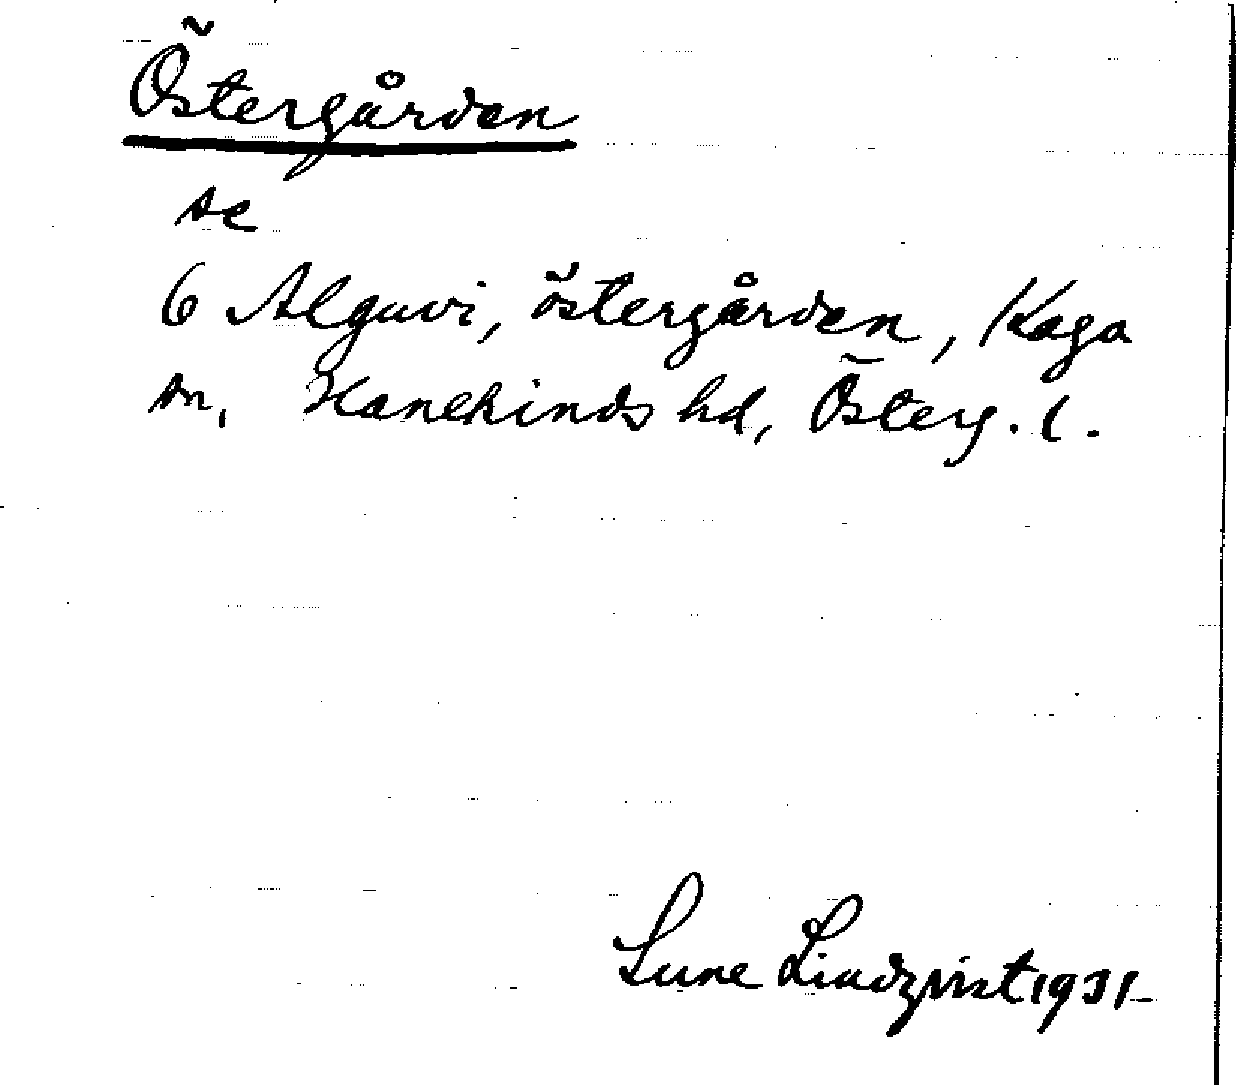 Östergården
se
6 Alguvi, östergården, Kaga
sn, Hanekinds hd, Österg. l.
Sune Lindqvist 1931